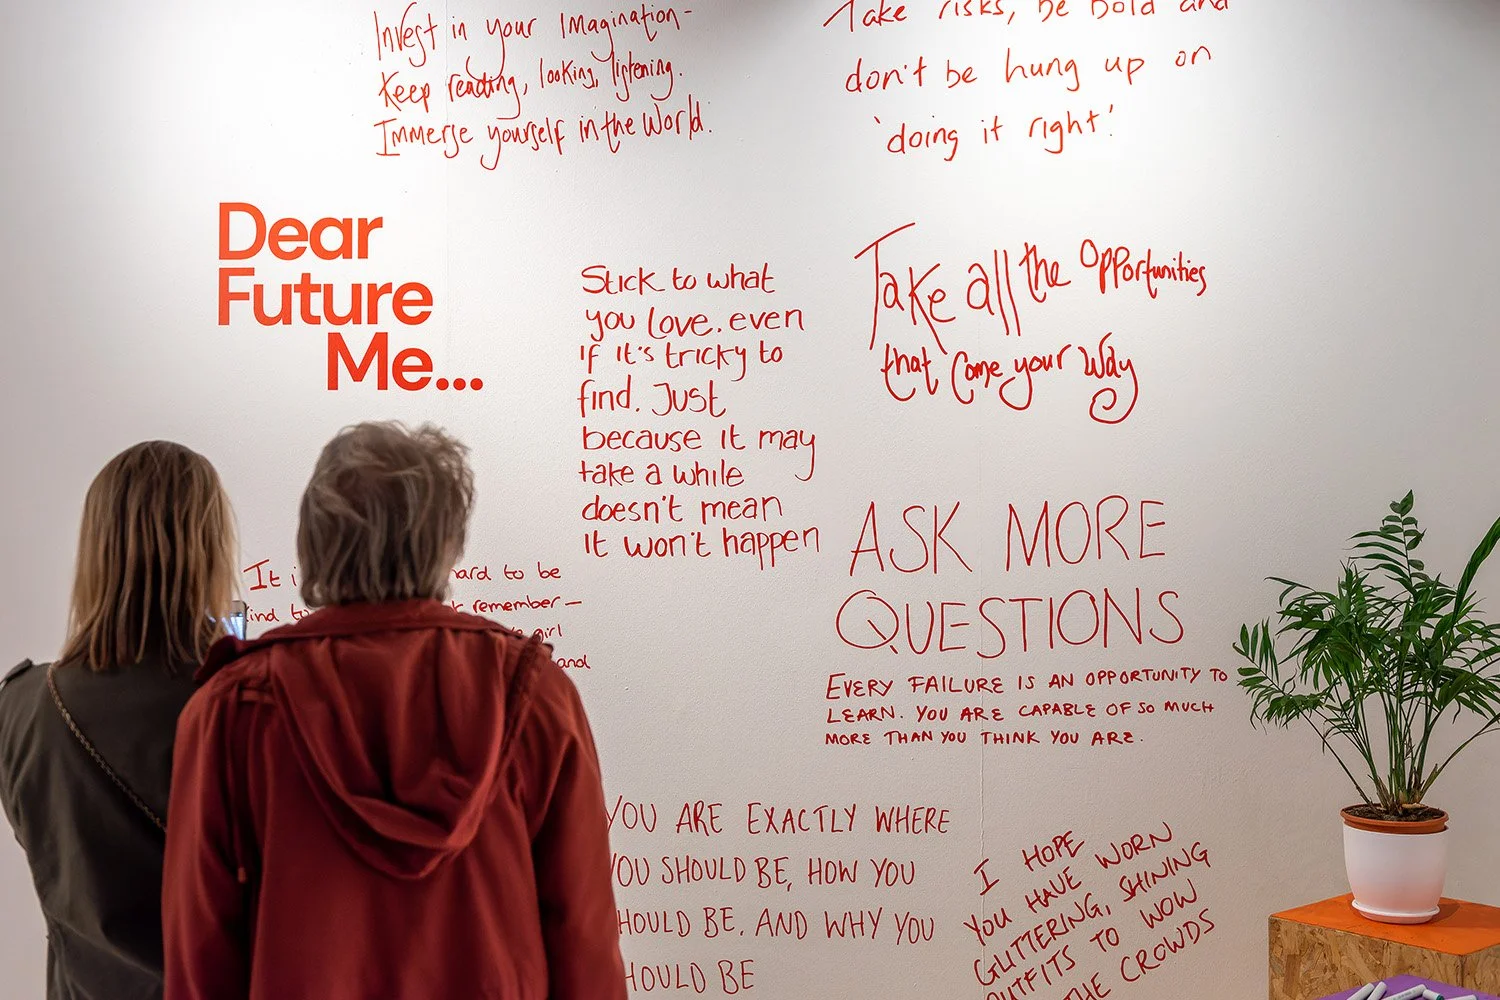 Invest in your Imagination-
Keep reading, looking, listening.
Immerse yourself in the World.
Take risks, be bold and
don't be hung up on
'doing it right.'
Dear
Future
Me...
Stick to what
you love. even
if it's tricky to
find. Just
because it may
take a while
doesn't mean
it won't happen
Take all the Opportunities
that Come your Way
It hard to be
remember —
girl
and
ASK MORE
QUESTIONS
EVERY FAILURE IS AN OPPORTUNITY TO
LEARN. YOU ARE CAPABLE OF SO MUCH
MORE THAN YOU THINK YOU ARE.
YOU ARE EXACTLY WHERE
YOU SHOULD BE, HOW YOU
SHOULD BE. AND WHY YOU
SHOULD BE
I HOPE
YOU HAVE WORN
GLITTERING, SHINING
OUTFITS TO WOW
THE CROWDS